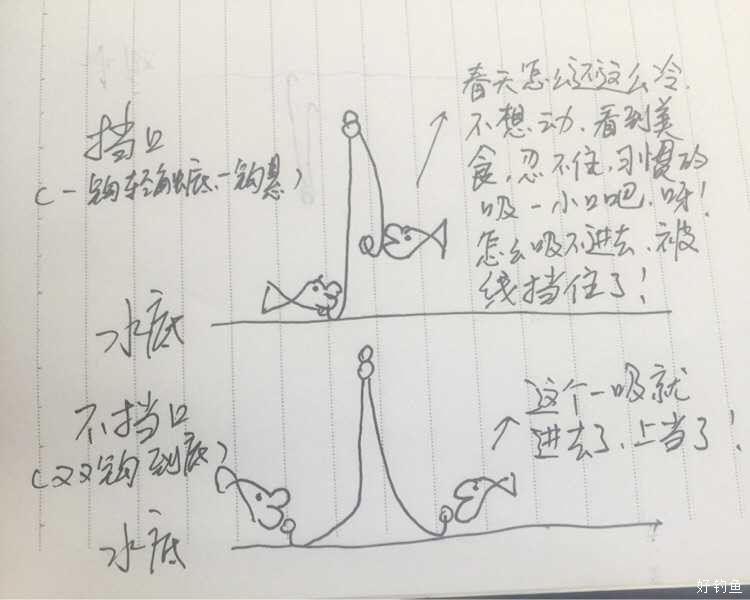 挡口
(一钩轻触底、一钩悬)
春天怎么还这么冷.
不想动、看到美
食,忍不住,习惯的
吸一小口吧,呀!
怎么吸不进去、被
线挡住了!
水底
不挡口
(双钩到底)
这个一吸就
进去了、上当了!
水底
好钓鱼